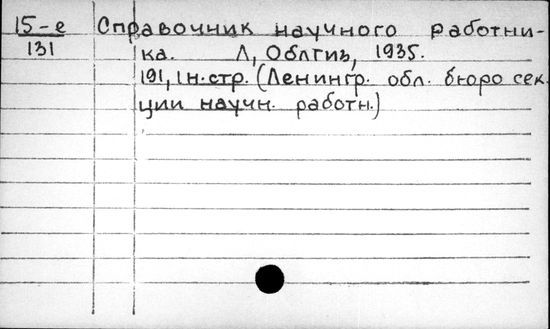 15-е Справочник научного работни-
131 ка. Л, Облгиз, 1935.
191, 1н.стр. (Ленингр. обл. бюро сек.
ции научн. работн.)